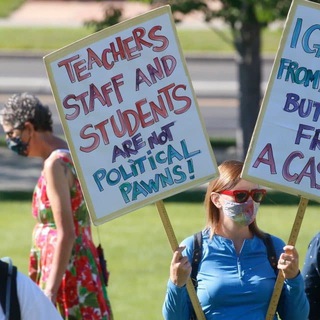 Teachers
Staff and
Students
are not
Political
Pawns!
I G
from
But
Fr
A Cas